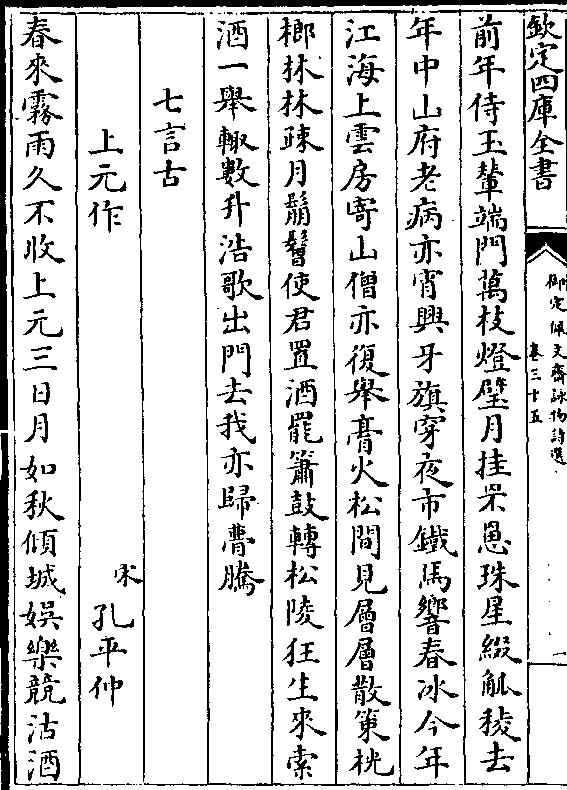 欽定四庫全書
御定佩文齋詠物詩選
卷三十五
一
前年侍玉輦端門萬枝燈璧月挂罘罳珠星綴觚稜去
年中山府老病亦宵興牙旗穿夜市鐵馬響春冰今年
江海上雲房寄山僧亦復舉膏火松間見層層散策桄
榔林林疎月鬅鬙使君置酒罷簫鼓轉松陵狂生來索
酒一舉輒數升浩歌出門去我亦歸瞢騰
七言古
上元作
宋 孔平仲
春來霧雨久不收上元三日月如秋傾城娛樂競沽酒